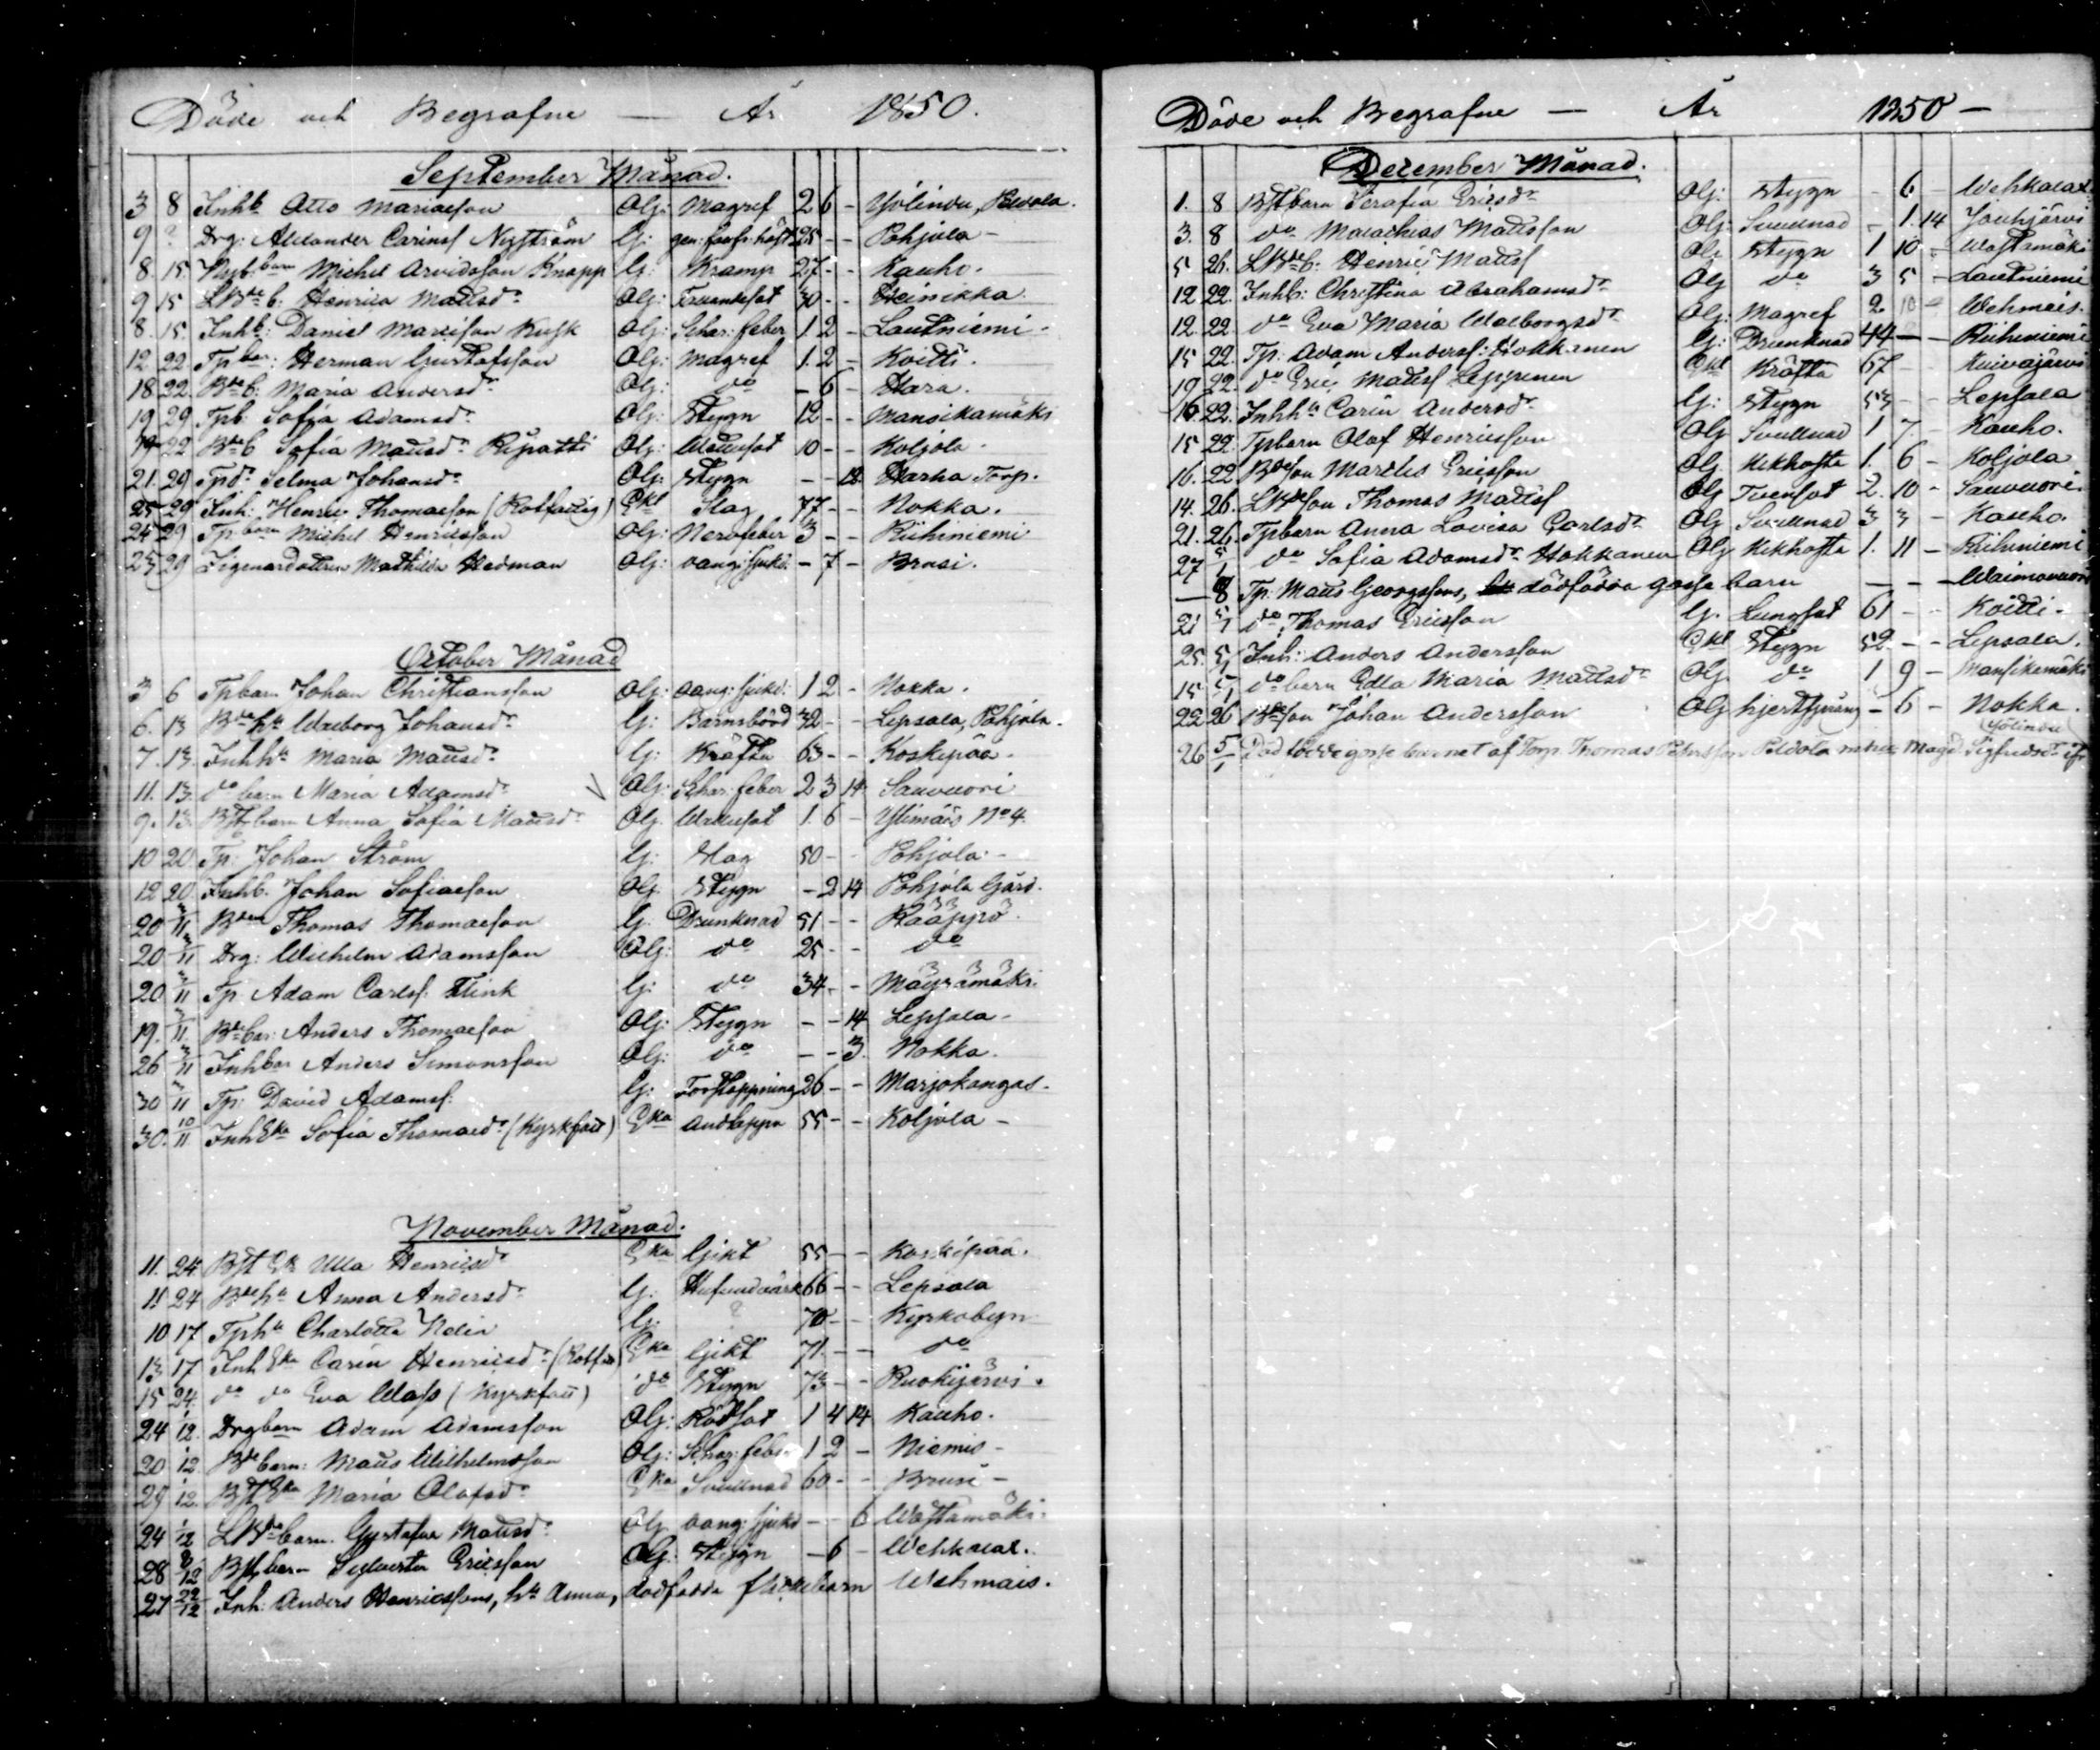 Döde och Begrafne — År 1850.
September Månad.
3 8 Inhb Otto Mariaeson Olg: Magref 2 6 - Yölindu, Peldola.
9 ? Drg: Alexander Carinsf Nyström G: 25 - - Pohjola -
8. 15. Michel Arvidsson Knapp G: Kramp 27 - - Kauho.
9 15 LBdeb: Henrica Mattsdr Olg: 30 - - Heinikka.
8. 15. Inhb: Daniel Kusk Olg: Schar: feber 1 2 - Lautniemi -
12 22 Tp bar: Herman Gustafsson Olg: Magref 1. 2 - Koitti.
18 22. Bdeb: Maria Andersdr Olg: do - 6 - Hara.
19 29 Tpb. Sofia Adamsdr Olg: Stygn 12 - - Mansikamäki
19 22 Bdeb Sofia Mattsdr Ripatti Olg: 10 - - Koljola -
21. 29 Tpdr Selma Johansdr Olg: Stygn - - 12. Harha Torp.
25 29 Inh: Henric Thomasson (Rotfattig) Ekl Slag 77 - - Nokka.
24 29 Tp barn Michel Henricsson Olg: Nervfeber 3 - - Riihiniemi
25 29 Mathilda Hedman Olg: oang: sjukd: - 7 - Brusi.
October Månad
3 6 Tpbarn Johan Christiansson Olg: oang: sjukd. 1 2 - Nokka.
6. 13 Bdehu Walborg Johansdr G: Barnsbörd 32 - - Lepsala, Pohjola.
7. 13. Inhhu Maria Mattsdr G: Kräfta 63 - - Koskipää -
11. 13. do barn Maria Adamsdr Olg: Schar: feber 2 3 14 Sauvuori
9. 13. Bstbarn Anna Sofia Mattsdr Olg. 1. 6 - Ylimäis No 4.
10 20 Tp: Johan Ström G: Slag 50 - - Pohjola -
12 20. Inhb. Johan Sofiaeson Olg. Stygn - 2 14 Pohjola Gård.
20 3/11 Bden Thomas Thomasson G. Drunknad 51 - - Rääppö.
20 3/11 Drg: Wilhelm Adamsson Olg: do 25 - - do
20 3/11 Tp Adam Carlsf. Flink G: do 34 - - Mäyrämäki.
19. 3/11. Bdebar: Anders Thomasson Olg: Stygn - - 14 Lepsala -
26 3/11 Inhbar Anders Simonsson Olg: do - - 3. Nokka.
30 3/11 Tp: David Adamsf. G: Förstoppning 26 - - Marjokangas -
30. 10/11 Inh Eka Sofia Thomasdr (Kyrkfatt) Eka Andtäppa 55 - - Koljola -
November Månad.
11. 24. Bst Ek Ulla Henricsdr Eka Gikt 55 - - Koskipää.
11 24 Bdehu Anna Andersdr G. Hufvudvärk 66 - - Lepsala
10 17 Tphu Charlotta Nelin G. ? 70 - - Kyrkobyn
13 17 Inh Eka Carin Henricsdr (Rotfat) Eka Gikt 71. - - do
15 24. do do Eva Mats (Kyrkfatt) do Stygn 73 - - Ruokojärvi.
24 1/12. Drgbarn Adam Adamsson Olg: Rödsot 1 4 14 Kauho.
20 1/12 Bdebarn: Matts Wilhelmsson Olg: Schar: feb: 1 2 - Niemis -
29 1/12. Bst Eka Maria Olofsdr Eka Svullnad 60 - - Brusi -
24 1/12 LBdebarn. Gustafva Mattsdr Olg oang: sjukd - - 6 Wästämäki.
28 8/12 Bstbarn Sylvester Ericsson Olg: Stygn - 6 - Wehkalax.
27 22/12 Inh: Anders Henricssons, hu Anna, dödfödda flickebarn Wehmais.
Döde och Begrafne — År 1850 —
December Månad.
1. 8 Bstbarn Serafia Ericsdr Olg: Stygn - 6 - Wehkalax
3. 8 do Malachias Mattsson Olg. Svullnad - 1. 14 Jouhjärvi
5 26. LBdeb: Henric Mattsf Olg Stygn 1 10 - Wästämäki
12 22. Inhb: Christina Abrahamsdr Olg do 3 5 - Lautniemi
12. 22. do Eva Maria Walborgsdr Olg: Magref 2 10 - Wehmais.
15 22. Tp: Adam Andersf: Hokkanen G: Drunknad 44 — - Riihiniemi
19 22. do Eric Mattsf Leppenen Ekl Kräfta 67 - - Kuivajärvi
16 22. Inhhu Carin Andersdr G: Stygn 53 - - Lepsala
15 22. Tpbarn Olof Henricsson Olg Svullnad 1 7. - Kauho.
16. 22 Bdeson Marcus Ericsson Olg. Kikhosta 1. 6 - Koljola
14. 26. LBdeson Thomas Mattsf Olg Tvensot 2. 10 - Sauvuori.
21. 26. Tpbarn Anna Lovisa Carlsdr Olg Svullnad 3 3 - Kauho.
27 5/1 do Sofia Adamsdr Hokkanen Olg Kikhosta 1. 11 - Riihiniemi
— 8 Tp: Matts Georgssons, dödfödda gosse barn — - - Waimonvuori
21 5/1 do Thomas Ericsson G. Lungsot 61 - - Koitti -
25. 5/1 Inh: Anders Andersson Ekl Stygn 52 - - Lepsala.
15 5/1 do barn Edla Maria Mattsdr Olg. do 1 9 - Mansikamäki
22 26 Bdeson Johan Andersson Olg hjertsprång - 6 - Nokka.
26 5/1 Död födde gosse barnet af Torp. Thomas Pettersson Peldola Magd. Sigfredsdr (Yölindu